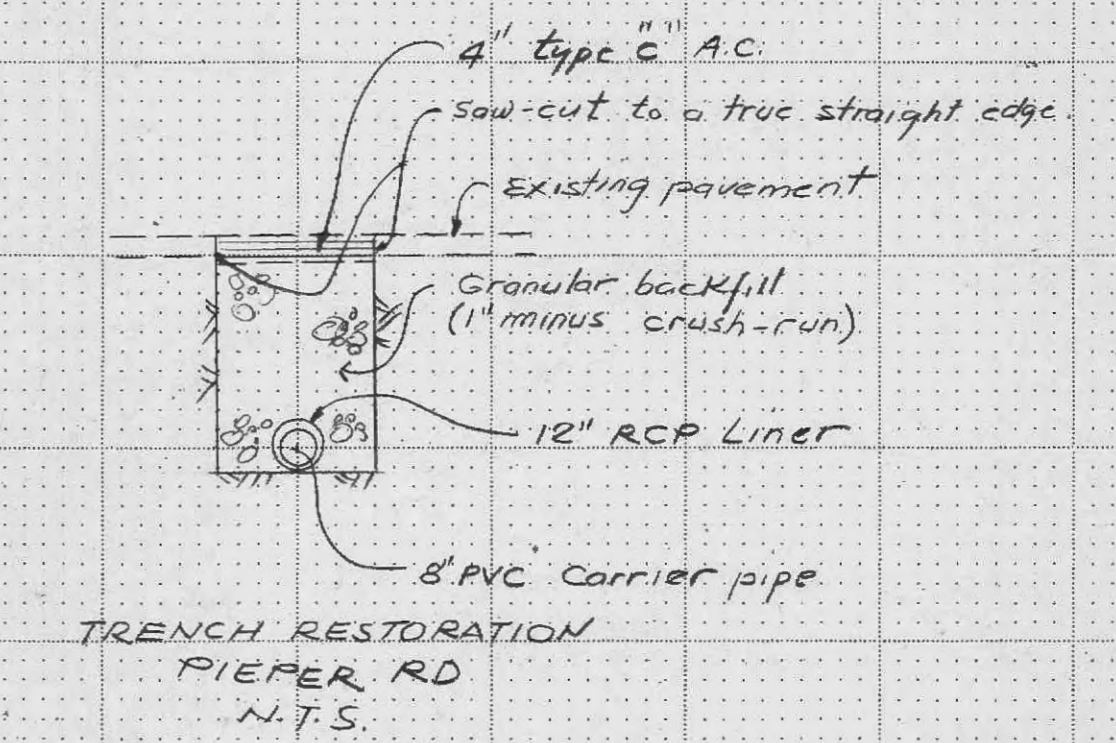 4" type "c" A.C.
saw-cut to a true straight edge.
Existing pavement
Granular backfill
(1" minus crush-run)
12" RCP Liner
8" PVC Carrier pipe
TRENCH RESTORATION
PIEPER RD
N.T.S.